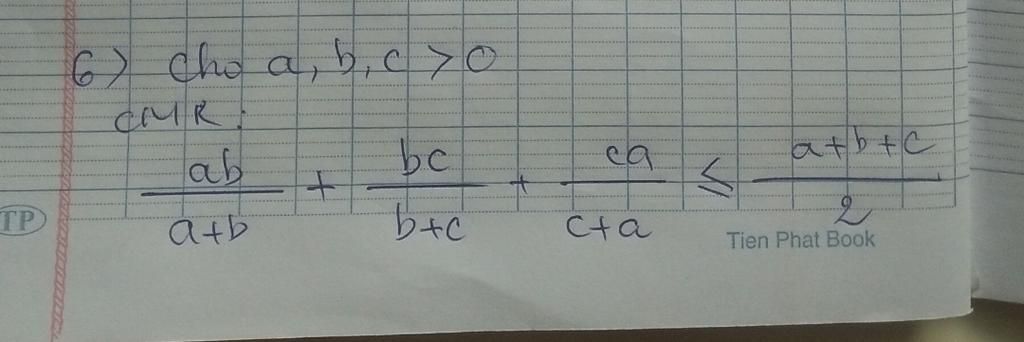 6) Cho a, b, c > 0
CMR:
ab/a+b + bc/b+c + ca/c+a ≤ a+b+c/2
TP
Tien Phat Book